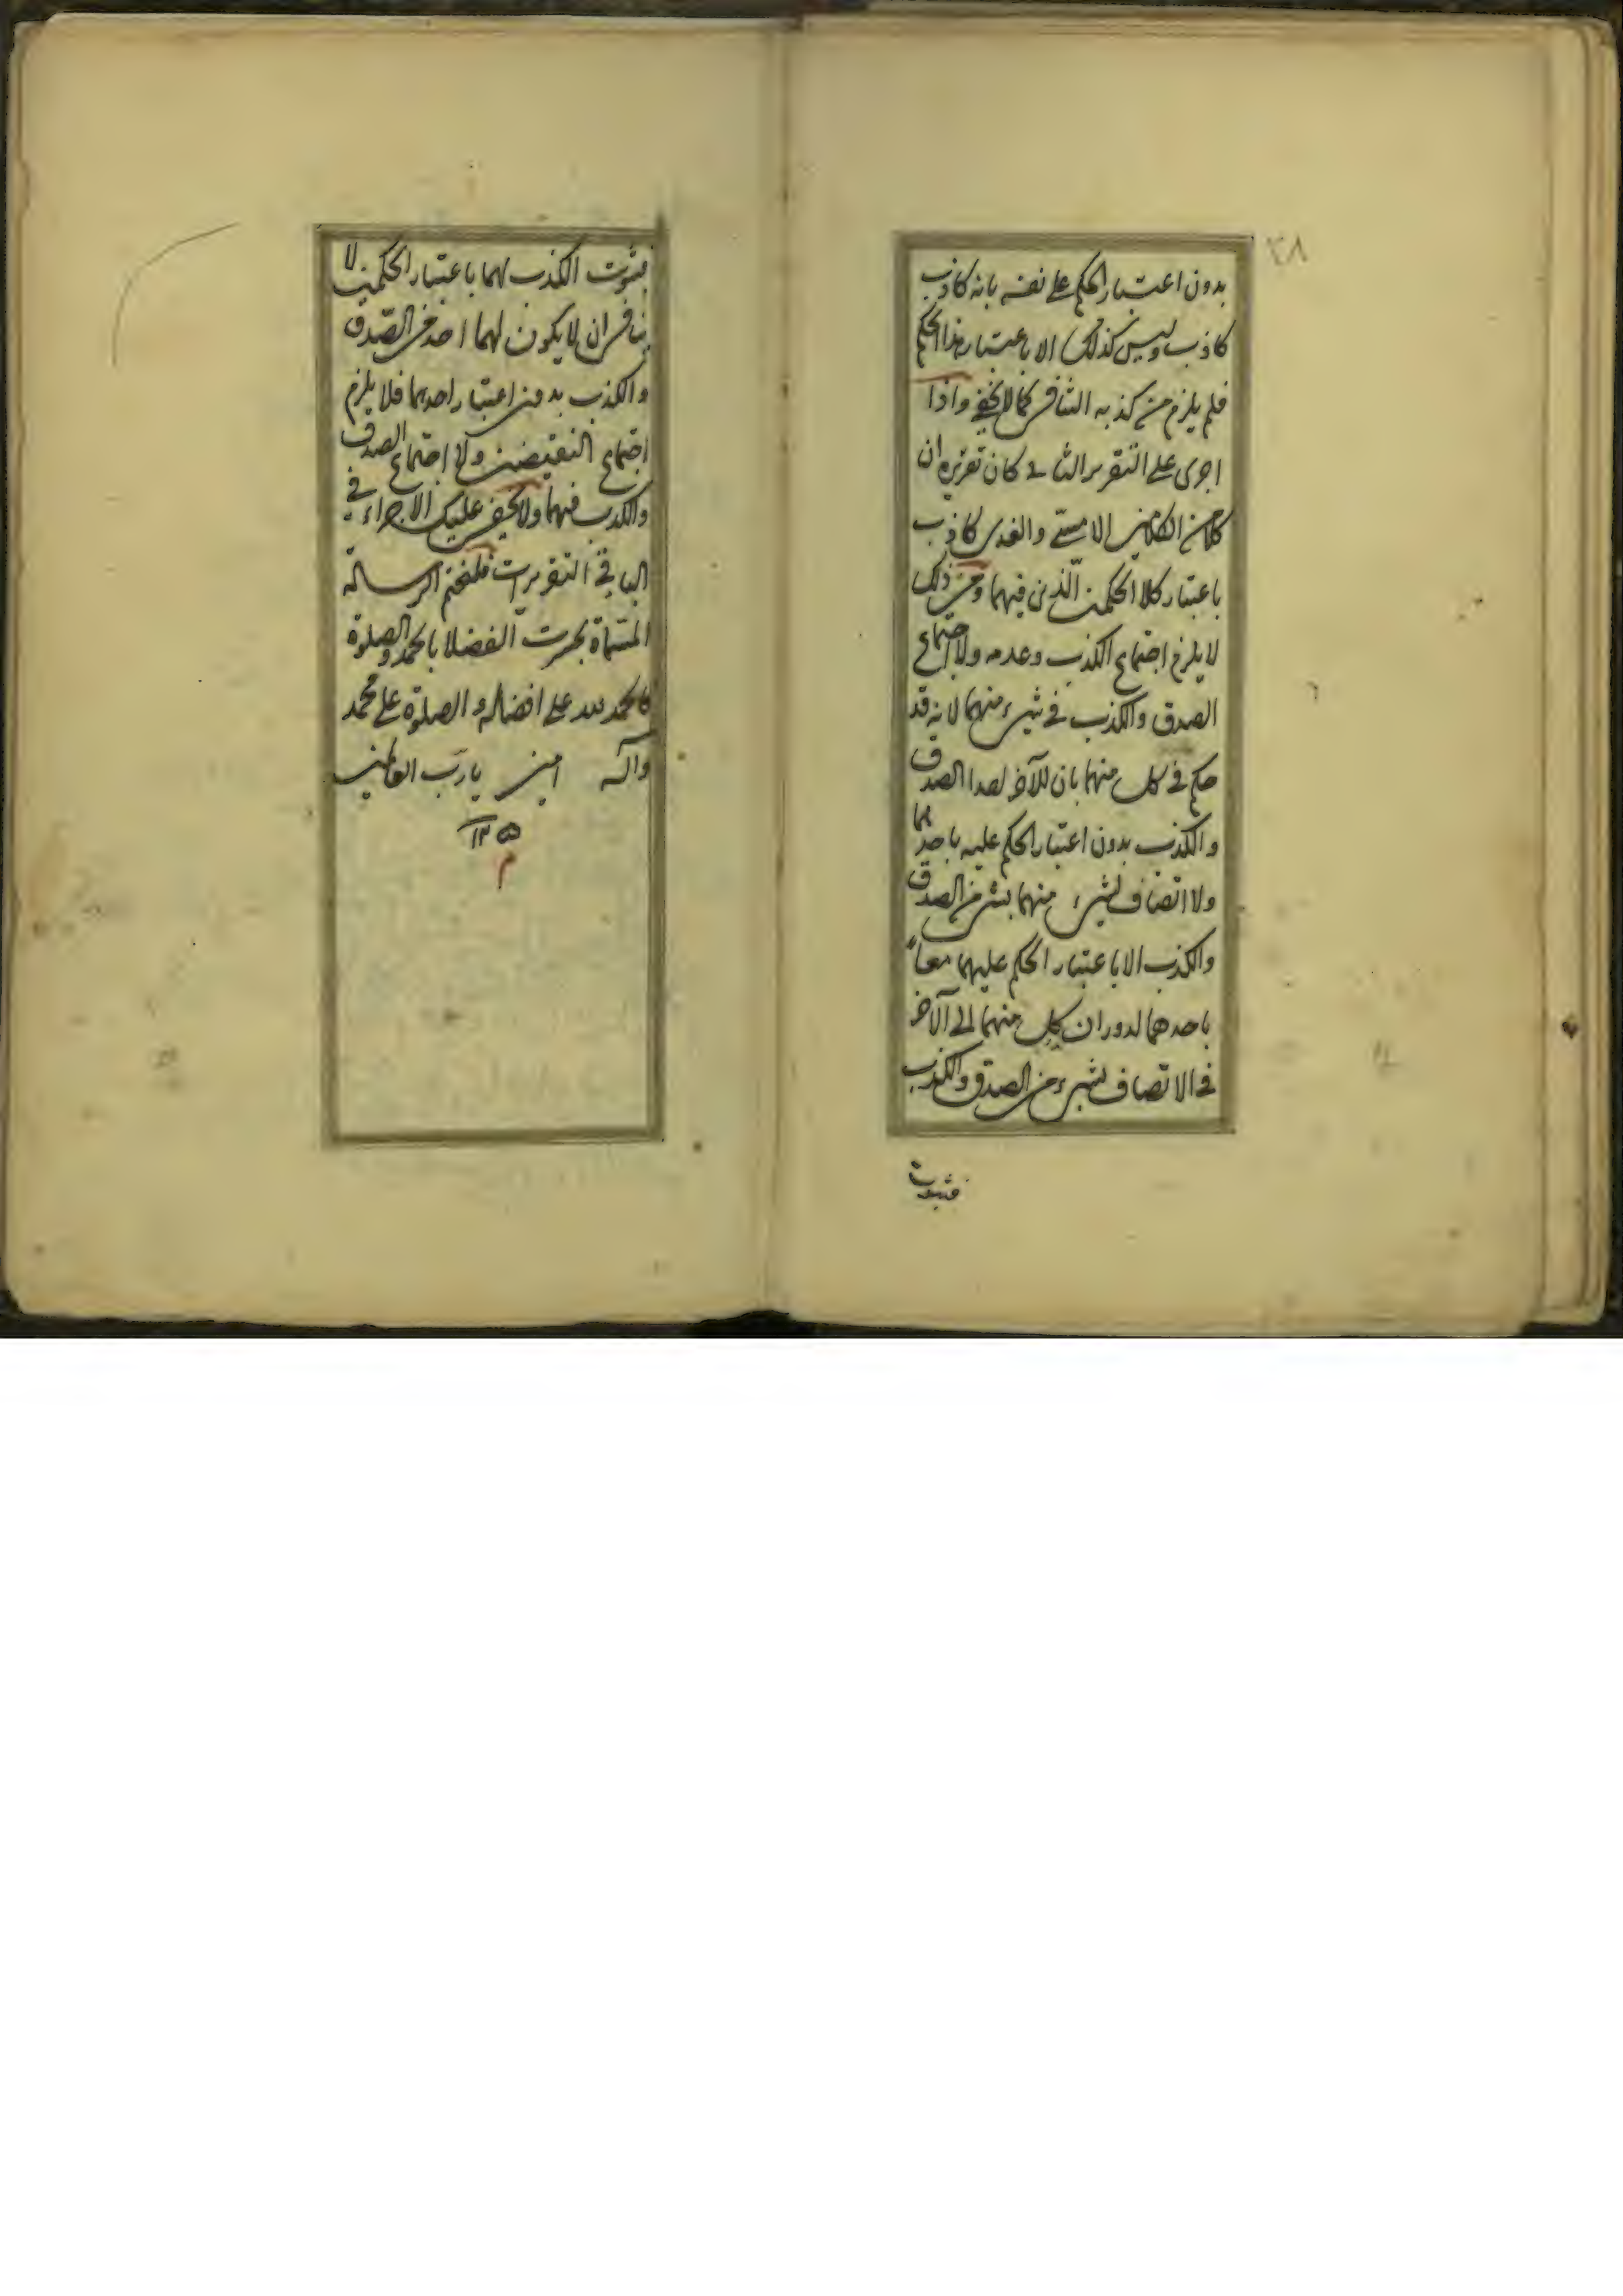 ٢٨
بدون اعتبار الحكم على نفسه بانه كاذب
كاذب وليس كذلك الا باعتبار هذا الحكم
فلم يلزم من كذبه التنافى كما لا يخفى واذا
اجرى على التقرير الثانى كان تقريره ان
كلا من الكلامين الامسى والغدى كاذب
باعتبار كلا الحكمين الّذين فيهما ومن ذلك
لا يلزم اجتماع الكذب وعدمه ولا اجتماع
الصدق والكذب فى شىء منهما لانه قد
حكم فى كل منهما بان للآخر احدا الصدق
والكذب بدون اعتبار الحكم عليه باحدهما
ولا اتصاف لشىء منهما بشىء من الصدق
والكذب الا باعتبار الحكم عليهما معاً
باحدهما لدوران كل منهما الى الآخر
فى الاتصاف بشىء من الصدق والكذب
فثبوت
فثبوت الكذب لهما باعتبار الحكمين لا
ينافى ان لا يكون لهما احد من الصّدق
والكذب بدون اعتبار احدهما فلا يلزم
اجتماع النقيضين ولا اجتماع الصدق
والكذب فيهما ولا يخفى عليك الاجراء فى
الباقى التقريرات فلنختم الرسالة
المسمّاة بحيرت الفضلا بالحمد والصلوة
فالحمد لله على افضاله والصلوة على محمد
وآله امين يا ربّ العالمين
١٢٥
م